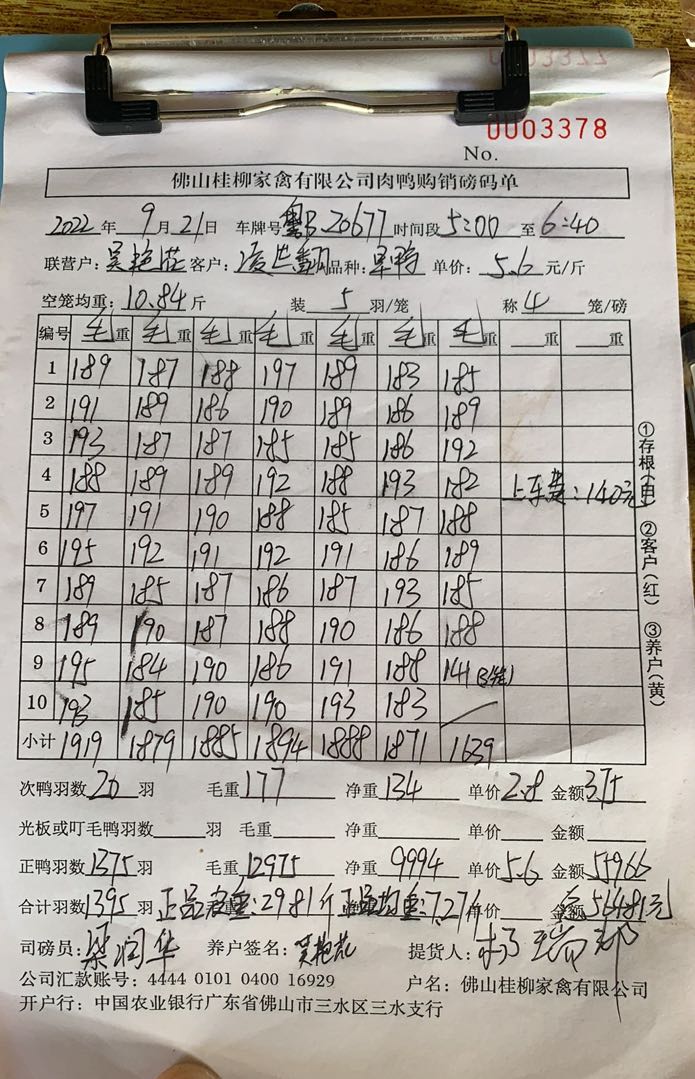 0003378
No.
佛山桂柳家禽有限公司肉鸭购销磅码单
2022年 9月21日 车牌号 粤B.20677 时间段 5:00 至 6:40
联营户: 吴艳花 客户: 品种: 旱鸭 单价: 5.6 元/斤
空笼均重: 10.84 斤 装 5 羽/笼 称 4 笼/磅
编号 毛重 毛重 毛重 毛重 毛重 毛重 毛重 重 重
1 189 187 188 197 189 183 185
2 191 189 186 190 189 186 189
3 193 187 187 185 185 186 192
4 188 189 189 192 188 193 182 上车费: 140元
5 197 191 190 188 185 187 188
6 195 192 191 192 191 186 189
7 189 185 187 186 187 193 185
8 189 190 187 188 190 186 188
9 195 184 190 186 191 188 141 (3笼)
10 193 185 190 190 193 183
小计 1919 1879 1885 1894 1888 1871 1639
①存根(白) ②客户(红) ③养户(黄)
次鸭羽数 20 羽 毛重 177 净重 134 单价 2.8 金额 375
光板或叮毛鸭羽数 羽 毛重 净重 单价 金额
正鸭羽数 1375 羽 毛重 12975 净重 9994 单价 5.6 金额 55966
合计羽数 1395 羽 正品 重: 2981斤 正品均重: 7.27斤 单价 金额 56481元
司磅员: 梁润华 养户签名: 吴艳花 提货人:
公司汇款账号: 4444 0101 0400 16929 户名: 佛山桂柳家禽有限公司
开户行: 中国农业银行广东省佛山市三水区三水支行